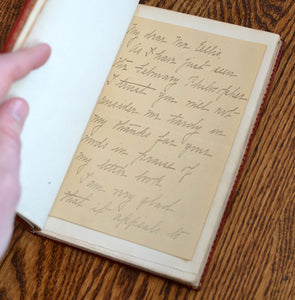 My dear Mr. Ellis.
As I have just seen
the February Philistine
I trust you will not
consider me tardy in
my thanks for your
words in praise of
my little book
I am very glad
that it appeals to